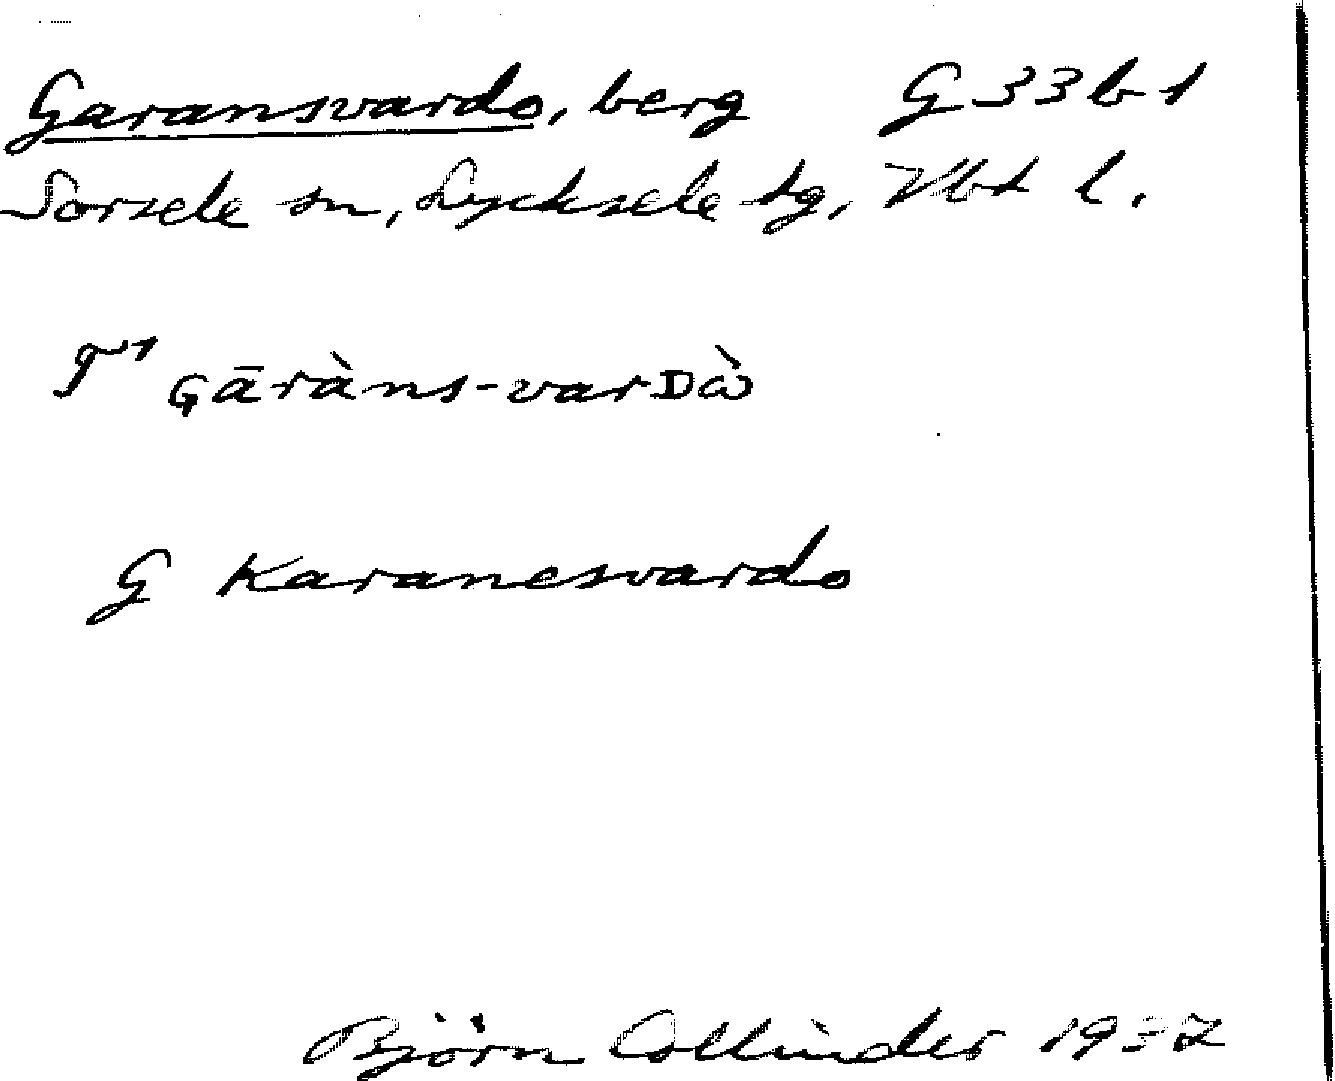 Garansvardo, berg G 33 b 1
Sorsele sn, Lycksele tg, Vbt l.
T¹ Gāràns-varDὼ
G Karanesvardo
Björn Collinder 1937